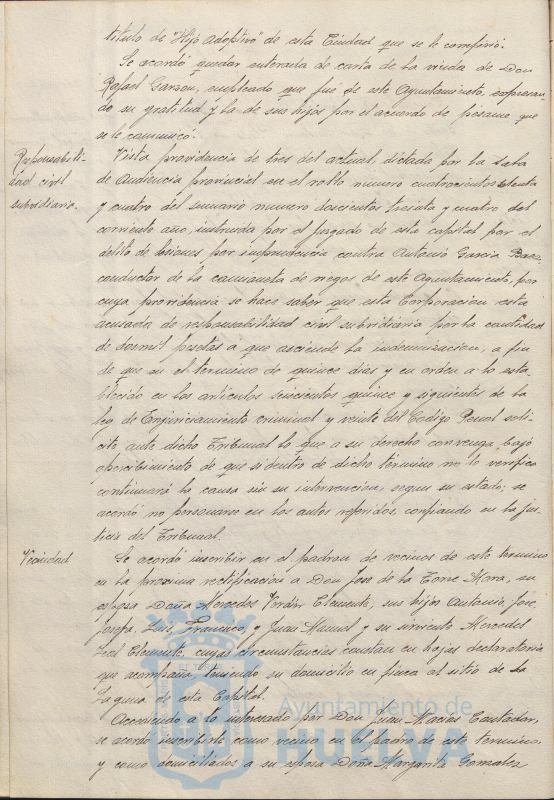 título de "Hijo Adoptivo" de esta Ciudad que se le confirió.
Se acordó quedar enterada de carta de la viuda de Don
Rafael Garzon, empleado que fue de este Ayuntamiento, expresan-
do su gratitud y la de sus hijos por el acuerdo de pésame que
se le comunicó.
Responsabili-
dad civil
subsidiaria.
Vista providencia de tres del actual, dictada por la Sala
de Audiencia provincial en el rollo numero cuatrocientos setenta
y cuatro del sumario numero doscientos treinta y cuatro del
corriente año, instruida por el juzgado de esta capital por el
delito de lesiones por imprudencia contra Antonio Garcia
conductor de la camioneta de riegos de este Ayuntamiento, por
cuya providencia se hace saber que esta Corporacion esta
acusada de responsabilidad civil subsidiaria por la cantidad
de dosmil pesetas a que asciende la indemnizacion, a fin
de que en el termino de quince dias y en orden a lo esta-
blecido en los articulos seiscientos quince y siguientes de la
ley de Enjuiciamiento criminal y veinte del Codigo Penal soli-
cite ante dicho Tribunal lo que a su derecho convenga bajo
apercibimiento de que si dentro de dicho termino no lo verifica
continuará la causa sin su intervencion, segun su estado; se
acordó no personarse en los autos referidos, confiando en la jus-
ticia del Tribunal.
Vecindad
Se acordó inscribir en el padron de vecinos de este termino
en la proxima rectificación a Don Jose de la Torre Mora, su
esposa Doña Mercedes Clemente, sus hijos Antonio, Jose,
Josefa, Luis, Francisco, y Juan Manuel y su sirvienta Mercedes
Leal Clemente, cuyas circunstancias constan en hojas declaratoria
que acompaña, teniendo su domicilio en finca al sitio de la
Laguna de esta Capital.
Accediendo a lo interesado por Don Juan Macias Contador,
se acordó inscribirle como vecino el padron de este termino,
y como domiciliados a su esposa Doña Margarita Gonzalez
Ayuntamiento de
HUELVA